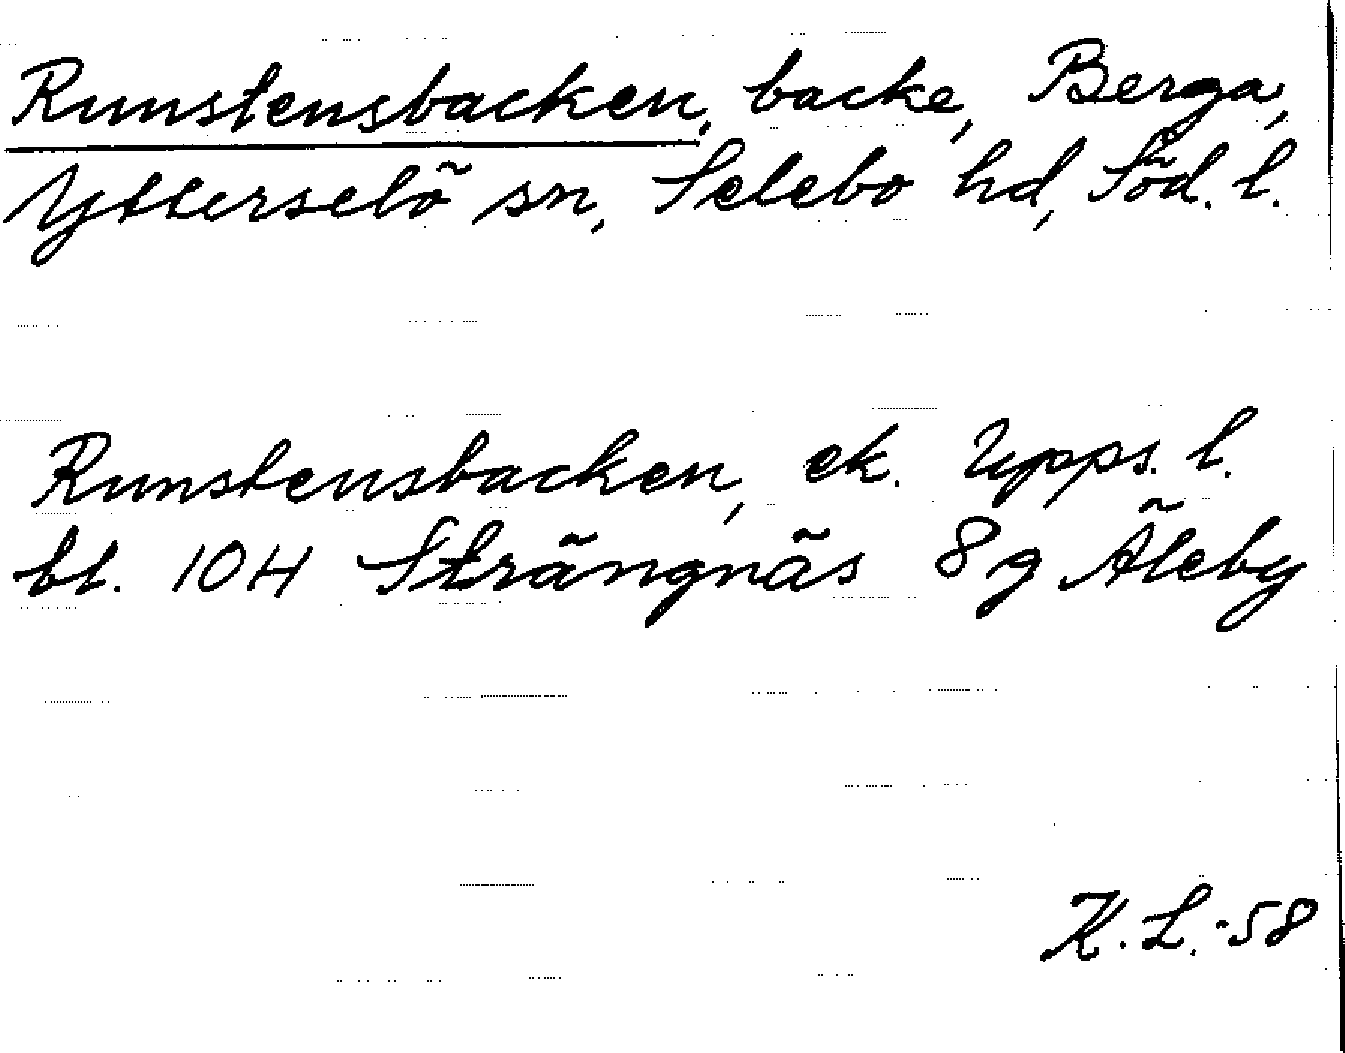 Runstensbacken, backe, Berga,
Ytterselö sn, Selebo hd, Söd. l.
Runstensbacken, ek. Upps. l.
bl. 10H Strängnäs 8g Äleby
K.L.-58